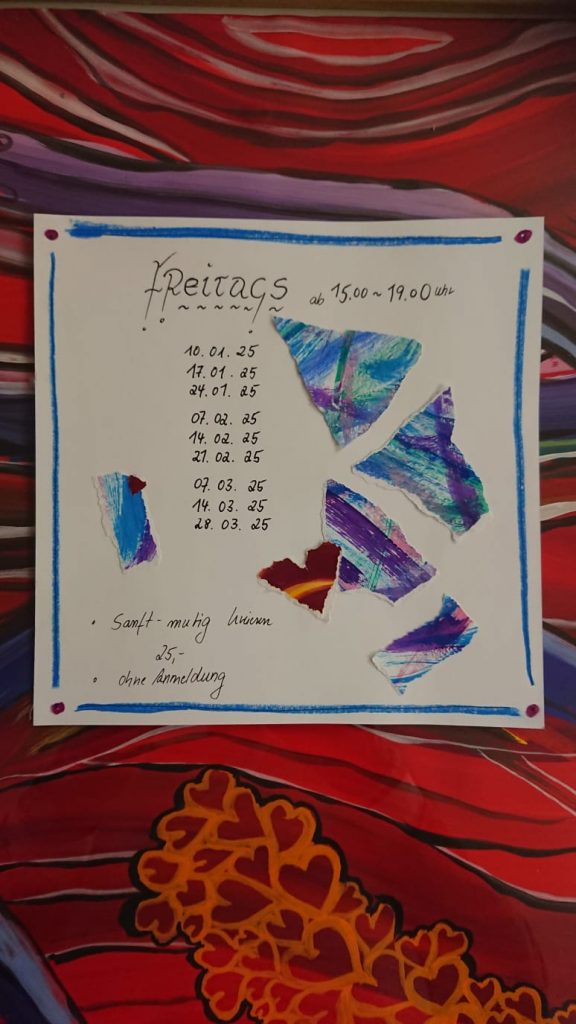 Freitags ab 15.00 ~ 19.00 Uhr
10.01.25
17.01.25
24.01.25
07.02.25
14.02.25
21.02.25
07.03.25
14.03.25
28.03.25
• Sanft-mutig
25,-
• ohne Anmeldung